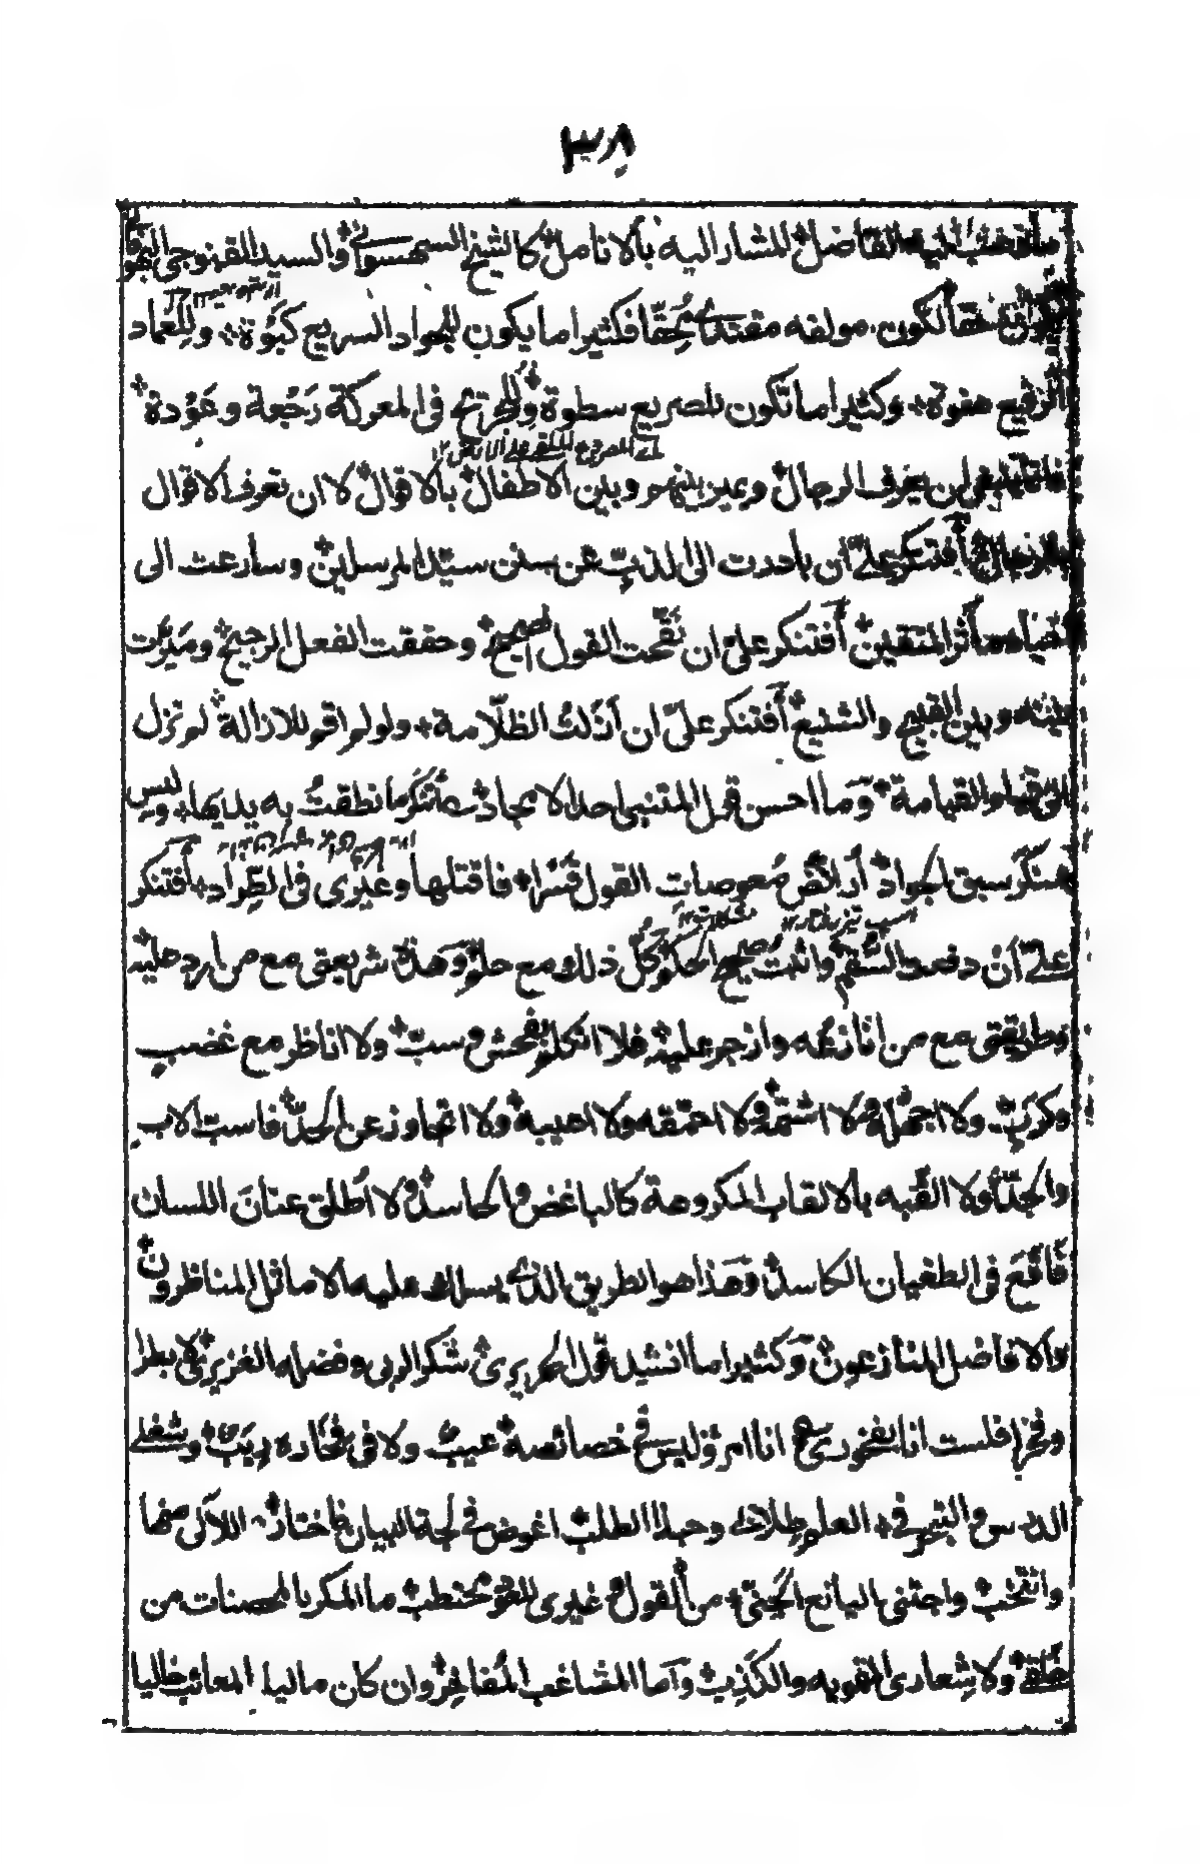 ٣٨
الفاضل المشار اليه بالانامل كالشيخ السهسواني والسيد القنوجي البهوفالي
لكون مولفه مقتدى محقا فكثيرا ما يكون للجواد السريع كبوة وللعماد
الرفيع هفوة وكثيرا ما تكون للصريع سطوة وللجريح في المعركة رجعة وعودة
ان يعرف الرجال ويميز بينهم وبين الاطفال بالاقوال لا ان تعرف الاقوال
بالرجال أفتنكر علي أن باحدت الى لذب عن سنن سيد المرسلين وسارعت الى
مآثر المتقين أفتنكر علي ان نقحت القول الصحيح وحققت الفعل الرجيح وميزت
بينه وبين القبيح والشنيع أفتنكر علي ان ازلت الظلامة ولو لم اقم للازالة لم تزل
الى قيام القيامة وما احسن قول المتنبي احد الا يجاد شعر أتنكر ما نطقت به بديها وليس
بمنكر سبق الجواد أراكض معوصات القول قسرا فاقتلها وغيري في الطراد أفتنكر
علي أن دفعت السقم وأثبت صحيح الحكم كل ذلك مع حلم وهذه شريعتي مع من ارد عليه
وطريقتي مع من انازعه وازجر عليه فلا اتكلم بفحش وسب ولا اناظر مع غضب
وكرب ولا اجهله ولا اشتمه ولا احمقه ولا اعيبه ولا اتجاوز عن الحد فاسب الاب
والجد ولا القبه بالالقاب المكروهة كالباغض والحاسد ولا أطلق عنان اللسان
فاقع في الطغيان الكاسد وهذا هو الطريق الذي يسلك عليه الاماثل المناظرون
والافاضل المنازعون وكثيرا ما انشد قول الحريري شكرا لربي وفضله الغزيري لا بطرا
وفخرا فلست انا بفخوري شعر انا امرؤ ليس في خصائصه عيب ولا في فخاره ريب وشغلي
الدرس والتبحر في العلم طلابي وحبذا الطلب اغوص في لجة البيان فاختار اللآلي منها
وانتخب واجتني اليانع الجني من القول وغيري للعود محتطب ما المكر بالمحصنات من
خلقي ولا شعاري التمويه والكذب وأما المشاغب المفاخر وان كان ماليا المعائب خاليا